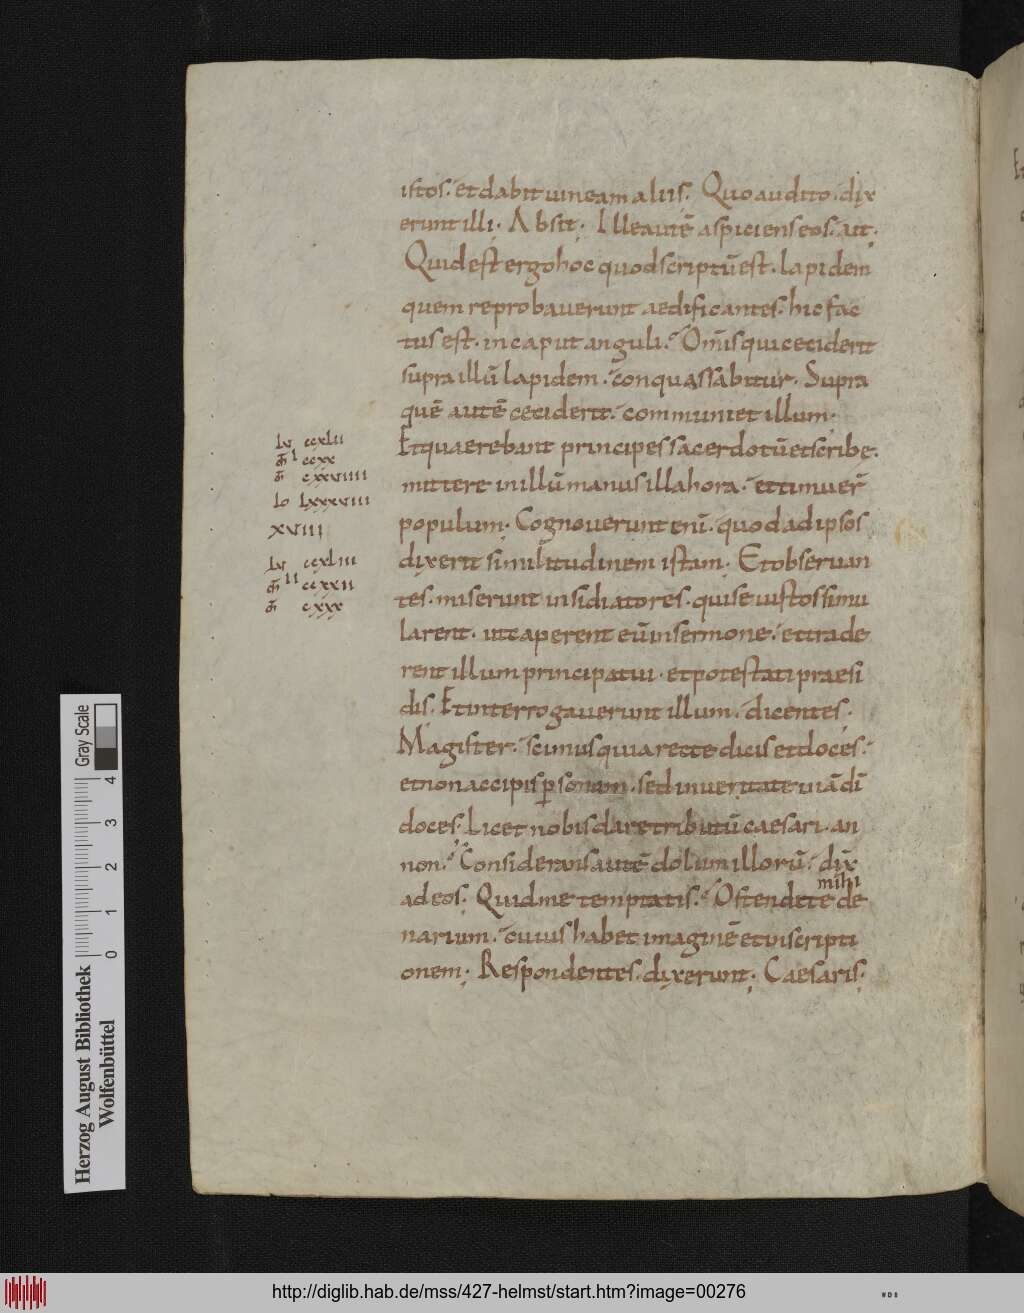 istos. et dabit uineam aliis. Quo audito. dix
erunt illi. Absit. Ille autē aspiciens eos. ait.
Quid est ergo hoc quod scriptū est. lapidem
quem reprobauerunt aedificantes. hic fac
tus est. in caput anguli. Om̄is qui ceciderit
supra illū lapidem. conquassabitur. Supra
quē autē ceciderit. comminuet illum.
Et quaerebant principes sacerdotū et scribe.
mittere in illū manus illa hora. et timuer̄
populum. Cognouerunt eni̅. quod ad ipsos
dixerit similitudinem istam. Et obseruan
tes. miserunt insidiatores. qui se iustos simu
larent. ut caperent eū in sermone. et trade
rent illum principatui. et potestati praesi
dis. Et interrogauerunt illum. dicentes.
Magister. scimus quia recte dicis et doces.
et non accipis ꝑsonam. sed in ueritate uiā dī
doces. Licet nobis dare tributū caesari. an
non. Considerans autē dolum illorū. dix̄
mihi
ad eos. Quid me temptatis. Ostendite de
narium. cuius habet imaginē et inscripti
onem. Respondentes. dixerunt. Caesaris.
lv ccxlii
ccxx
cxxviiii
Io lxxxviii
xviii
lv ccxliii
ccxxii
cxxx
Gray Scale
0 1 2 3 4
Herzog August Bibliothek
Wolfenbüttel
http://diglib.hab.de/mss/427-helmst/start.htm?image=00276